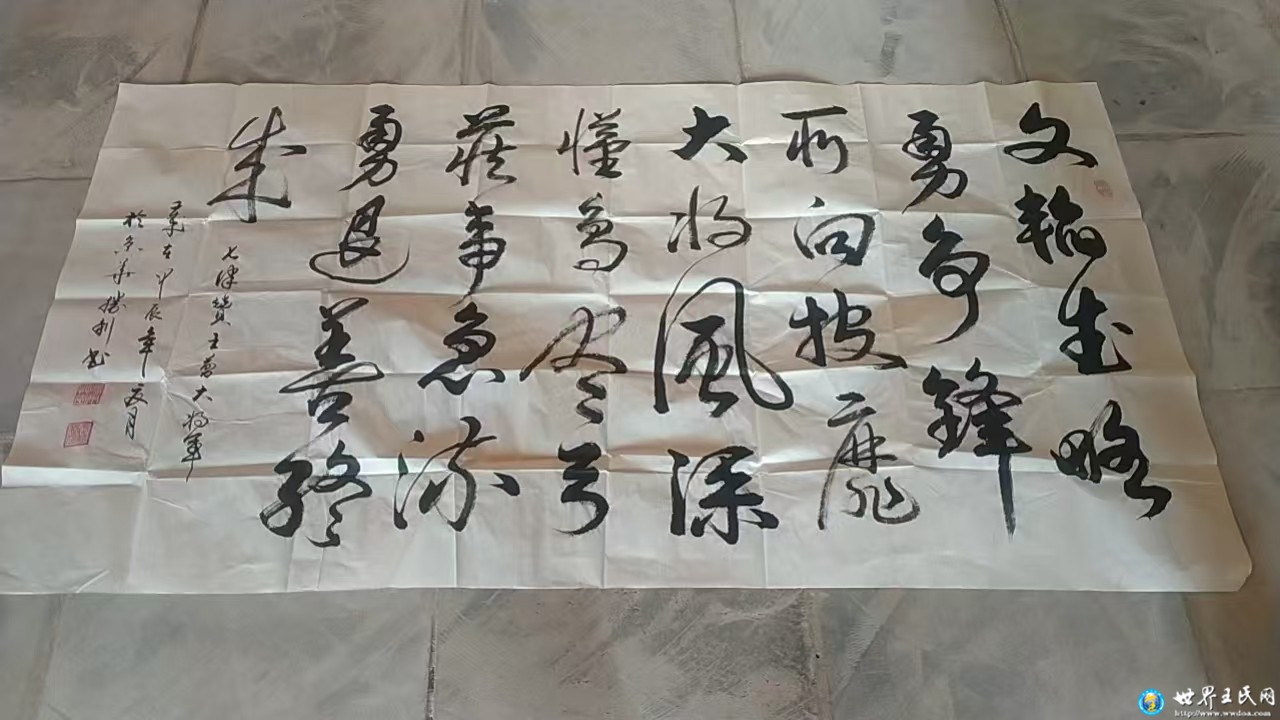 文韬武略
勇争锋
所向披靡
大将風深
懂鸟尽弓
藏事急流
勇退善终
成
七律赞王翦大将军
岁在甲辰年月
於京华胜利书
世界王民网
http://www.wwdoa.com